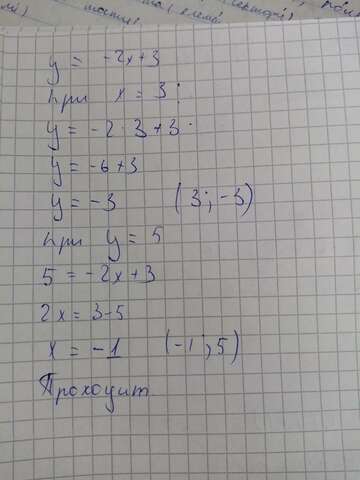 y = -2x+3
при x = 3;
y = -2·3+3
y = -6+3
y = -3 (3; -3)
при y = 5
5 = -2x+3
2x = 3-5
x = -1 (-1; 5)
Проходит